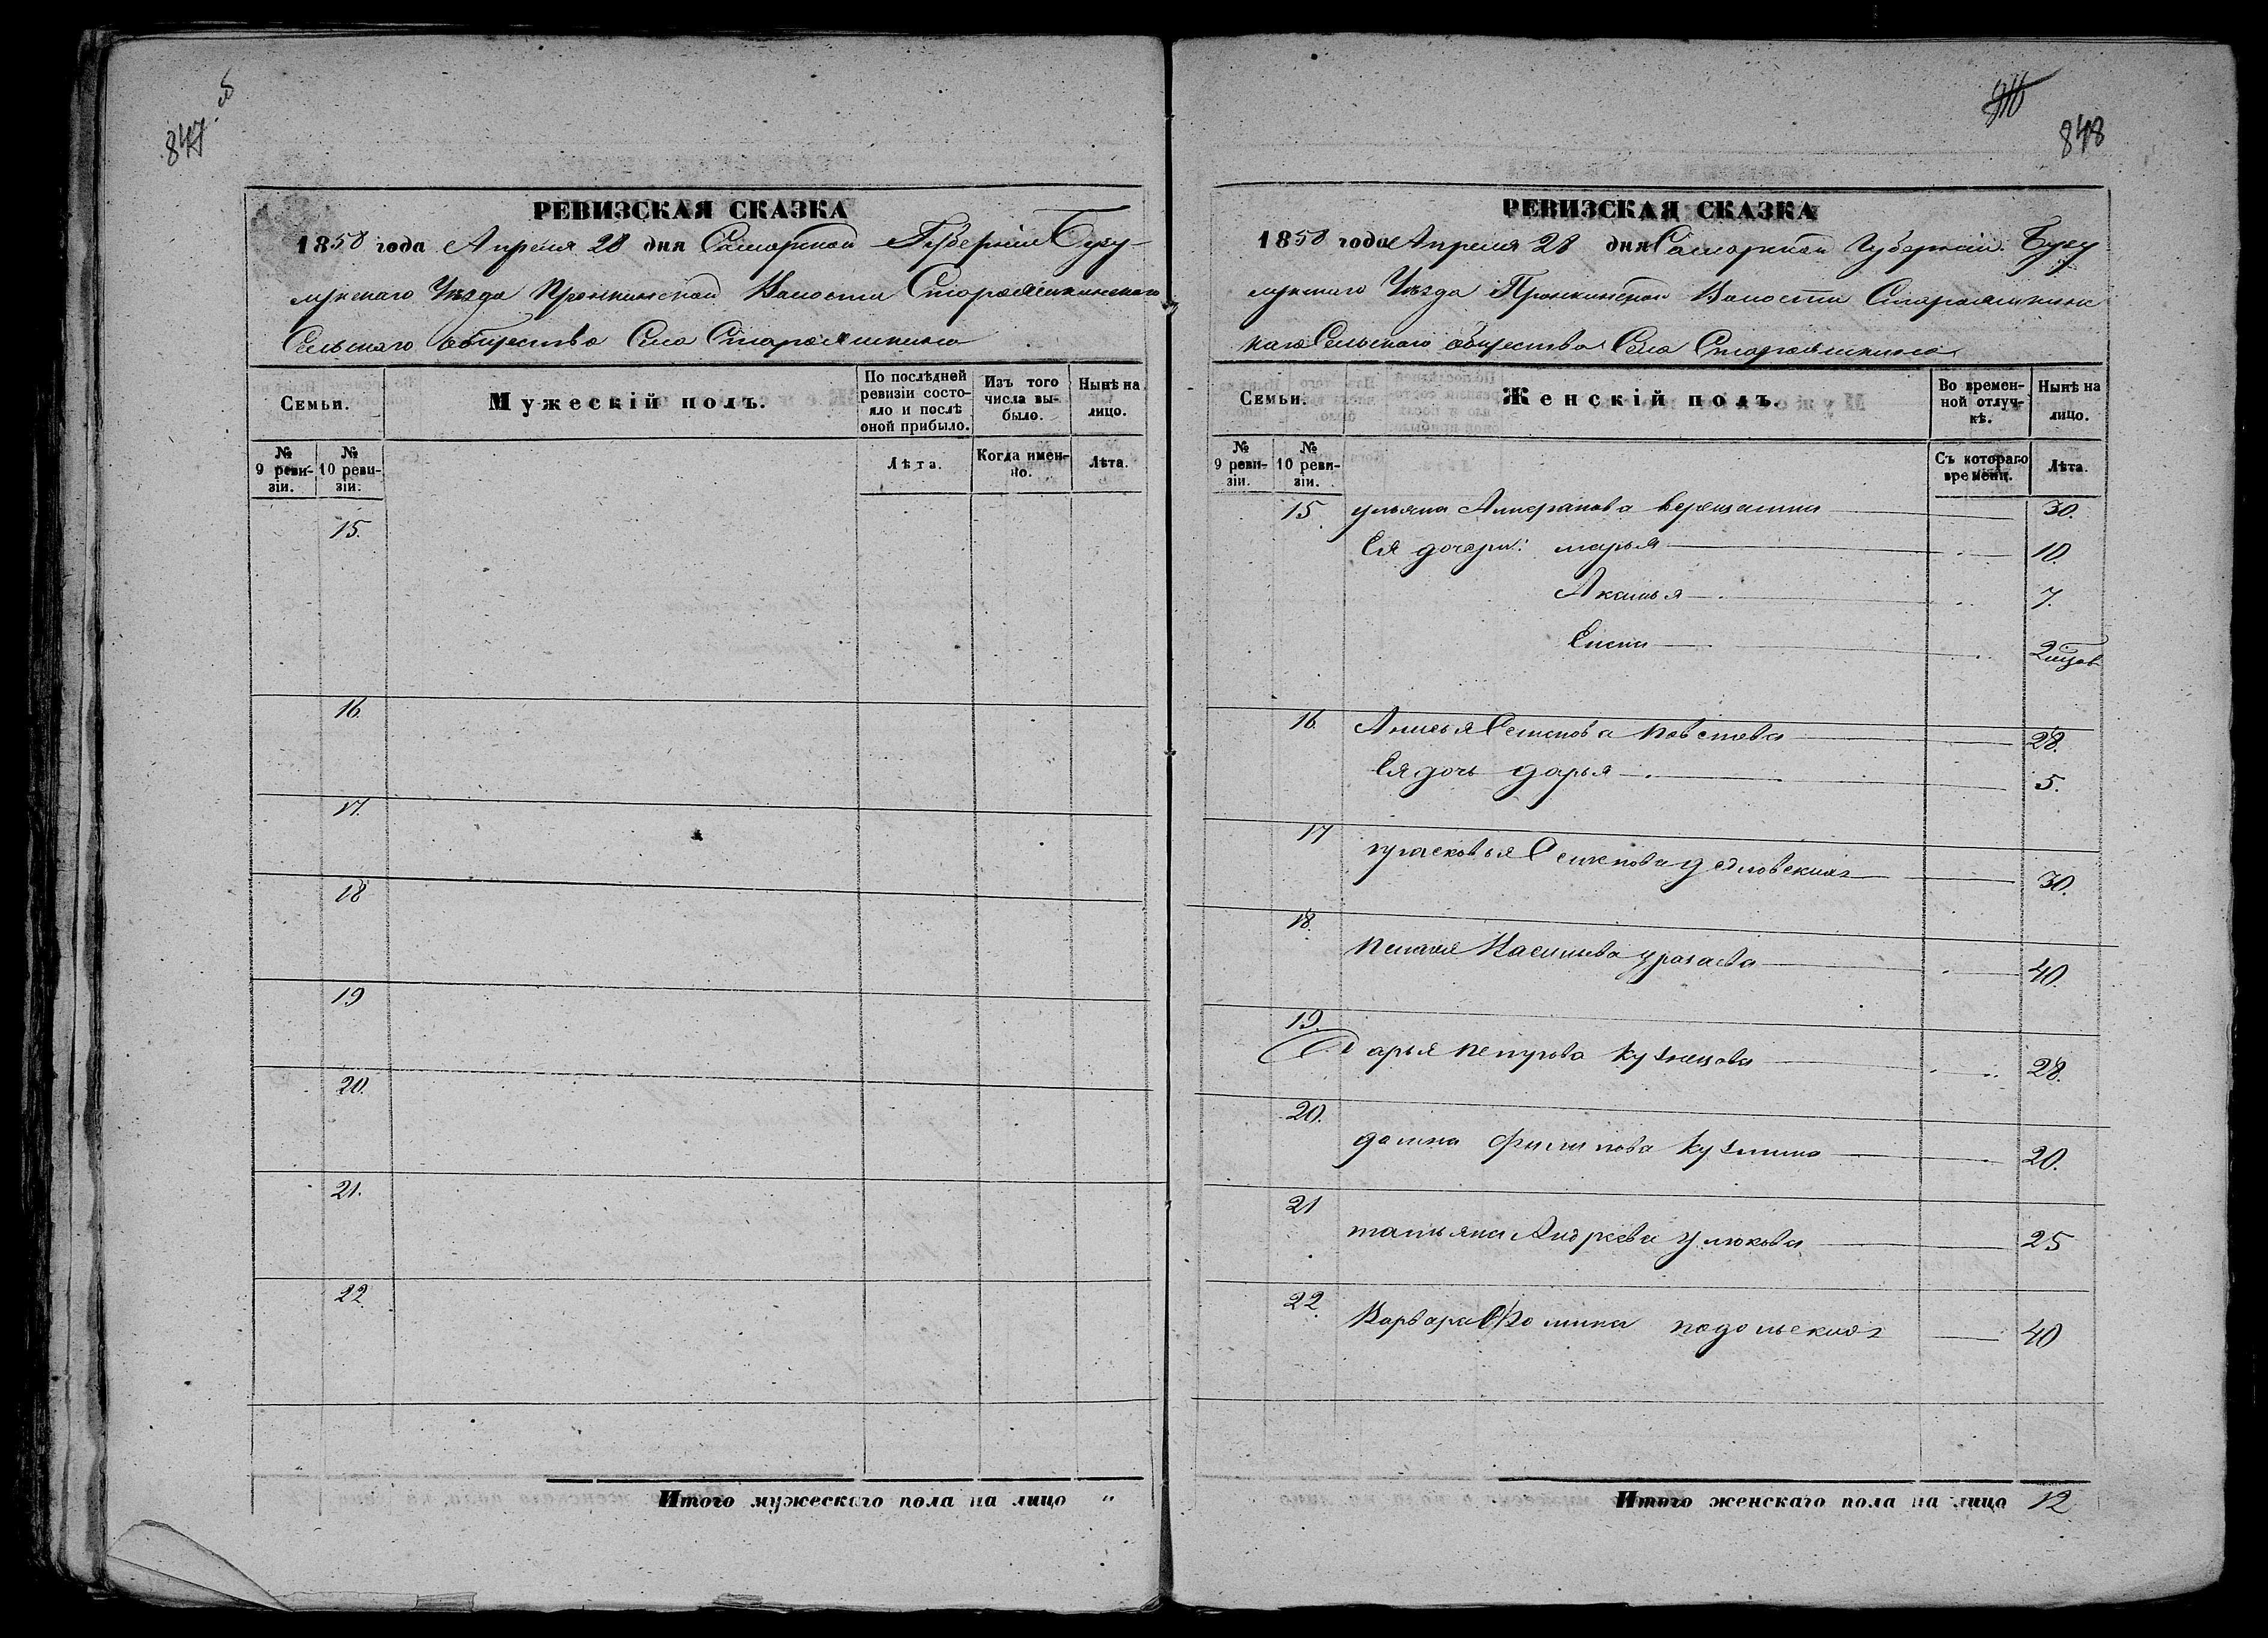 847
РЕВИЗСКАЯ СКАЗКА
1858 года Апреля 28 дня Самарской Губернии Бугу-
лукскаго Уѣзда Пронкинской Волости Староашкинскаго
Сельскаго общества Села Староашкина
Семьи.
Мужескій полъ.
По послѣдней ревизіи состо-
яло и послѣ оной прибыло.
Изъ того числа вы-
было.
Нынѣ на лицо.
№ 9 реви-
зіи.
№ 10 реви-
зіи.
Лѣта.
Когда имен-
но.
Лѣта.
15.
16.
17.
18
19
20.
21.
22.
Итого мужескаго пола на лицо "
848
РЕВИЗСКАЯ СКАЗКА
1858 года Апреля 28 дня Самарской Губернии Бугу
лукскаго Уѣзда Пронкинской Волости Староашкинс
каго Сельскаго общества Села Староашкина
Семьи.
Женскій полъ.
Во времен-
ной отлуч-
кѣ.
Нынѣ на лицо.
№ 9 реви-
зіи.
№ 10 реви-
зіи.
Съ котораго времени.
Лѣта.
15. ульяна 30.
Ея дочери: марья 10.
7.
2
16. Семенова 28.
Ея дочь дарья 5.
17 прасковья Семенова 30.
18. Васильева 40.
19. Дарья петрова Кузнецова 28.
20. домна Филипова Кузмина 20.
21 татьяна Андреева улюкова 25
22. Варвара Фомина подольских 40
Итого женскаго пола на лицо 12